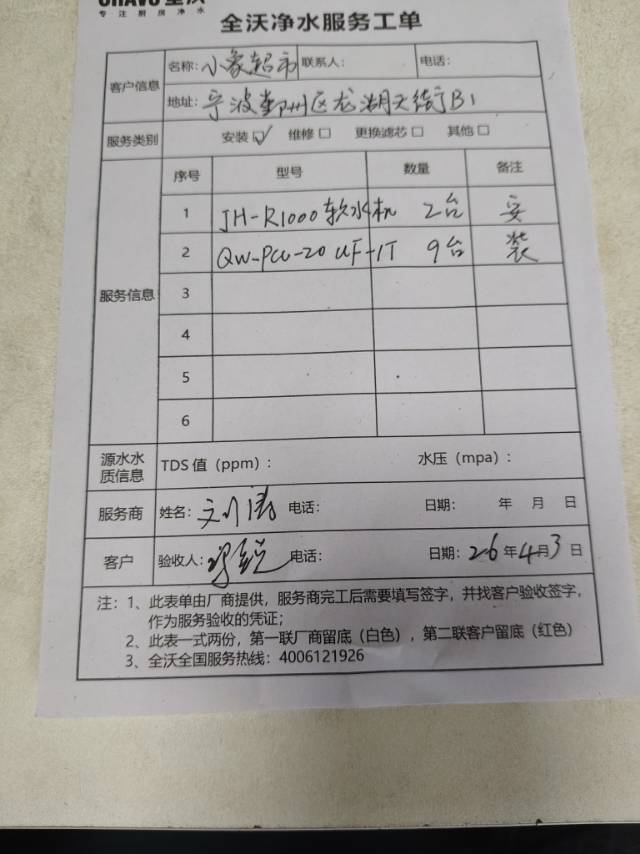 专注厨房净水
全沃净水服务工单
客户信息 名称：小象超市 联系人： 电话：
地址：宁波鄞州区龙湖天街B1
服务类别 安装☑ 维修□ 更换滤芯□ 其他□
服务信息 序号 型号 数量 备注
1 JH-R1000软水机 2台 安
2 QW-PCU-20 UF-1T 9台 装
3
4
5
6
源水水质信息 TDS 值（ppm）： 水压（mpa）：
服务商 姓名：刘涛 电话： 日期： 年 月 日
客户 验收人： 电话： 日期：26年4月3日
注：1、此表单由厂商提供，服务商完工后需要填写签字，并找客户验收签字，
作为服务验收的凭证；
2、此表一式两份，第一联厂商留底（白色），第二联客户留底（红色）
3、全沃全国服务热线：4006121926